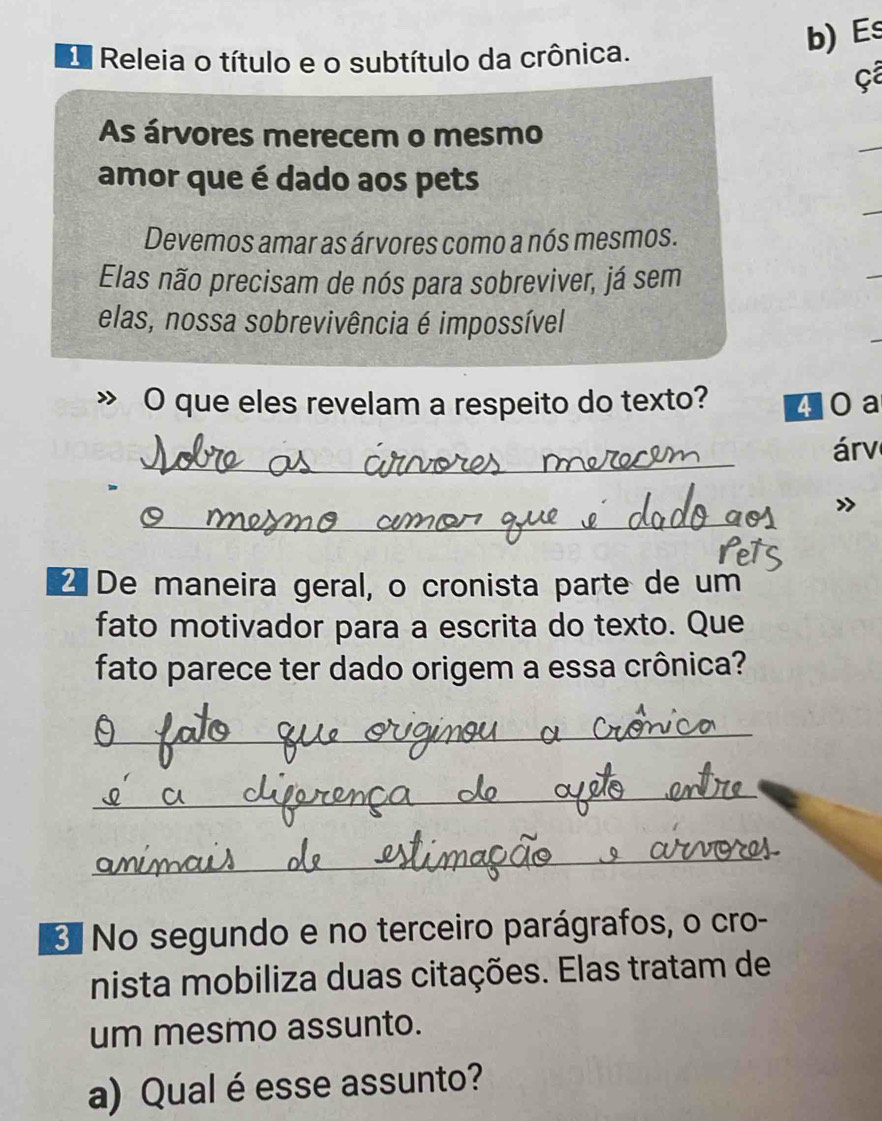 1 Releia o título e o subtítulo da crônica.
As árvores merecem o mesmo
amor que é dado aos pets
Devemos amar as árvores como a nós mesmos.
Elas não precisam de nós para sobreviver, já sem
elas, nossa sobrevivência é impossível
» O que eles revelam a respeito do texto?
Sobre as árvores merecem
o mesmo amor que é dado aos
Pets
2 De maneira geral, o cronista parte de um
fato motivador para a escrita do texto. Que
fato parece ter dado origem a essa crônica?
O fato que originou a crônica
é a diferença de afeto entre
animais de estimação e árvores.
3 No segundo e no terceiro parágrafos, o cro-
nista mobiliza duas citações. Elas tratam de
um mesmo assunto.
a) Qual é esse assunto?
b) Es
çã
4 O a
árv
»